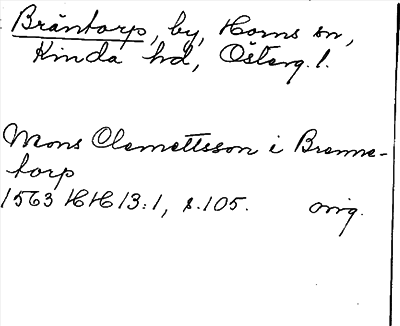 Bräntorp, by, Horns sn,
Kinda hd, Österg. l.
Mons Clemettsson i Brenne-
torp
1563 HH 13:1, s. 105. orig.